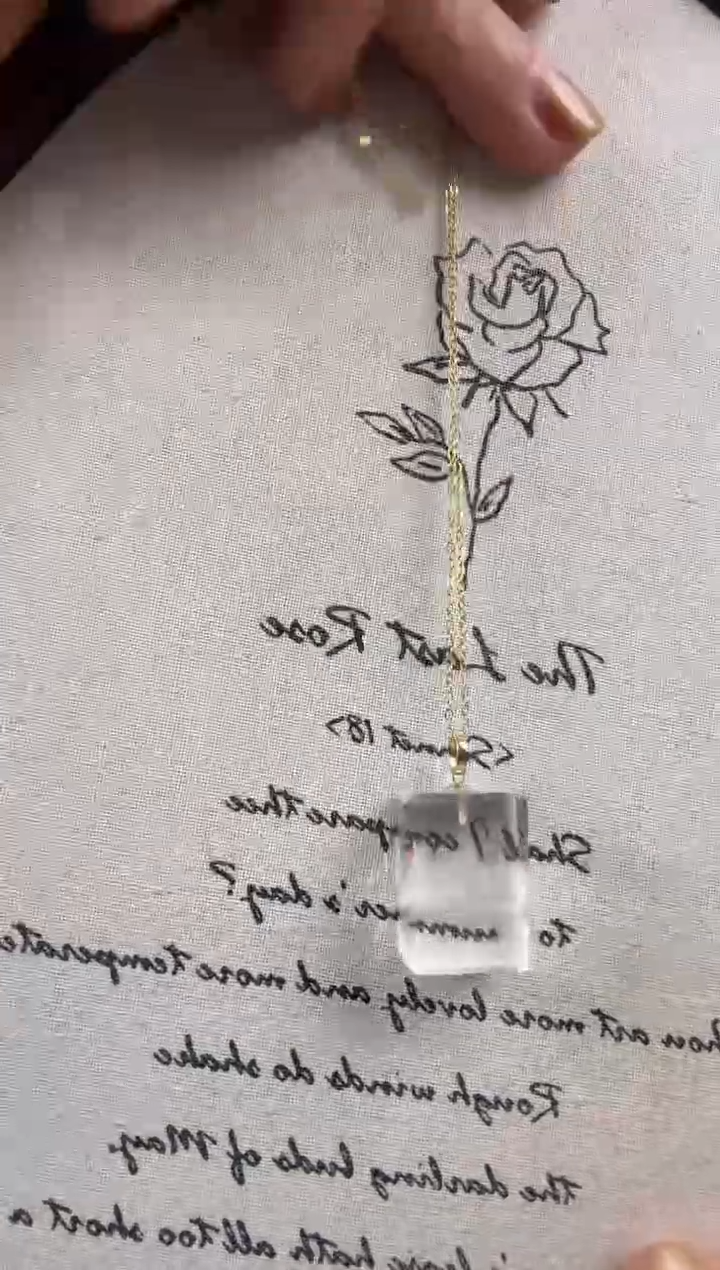 The Last Rose
<Sonnet 18>
Shall I compare thee
to summer's day?
hou art more lovely and more temperate
Rough winds do shake
the darling buds of May,
lease hath all too short a